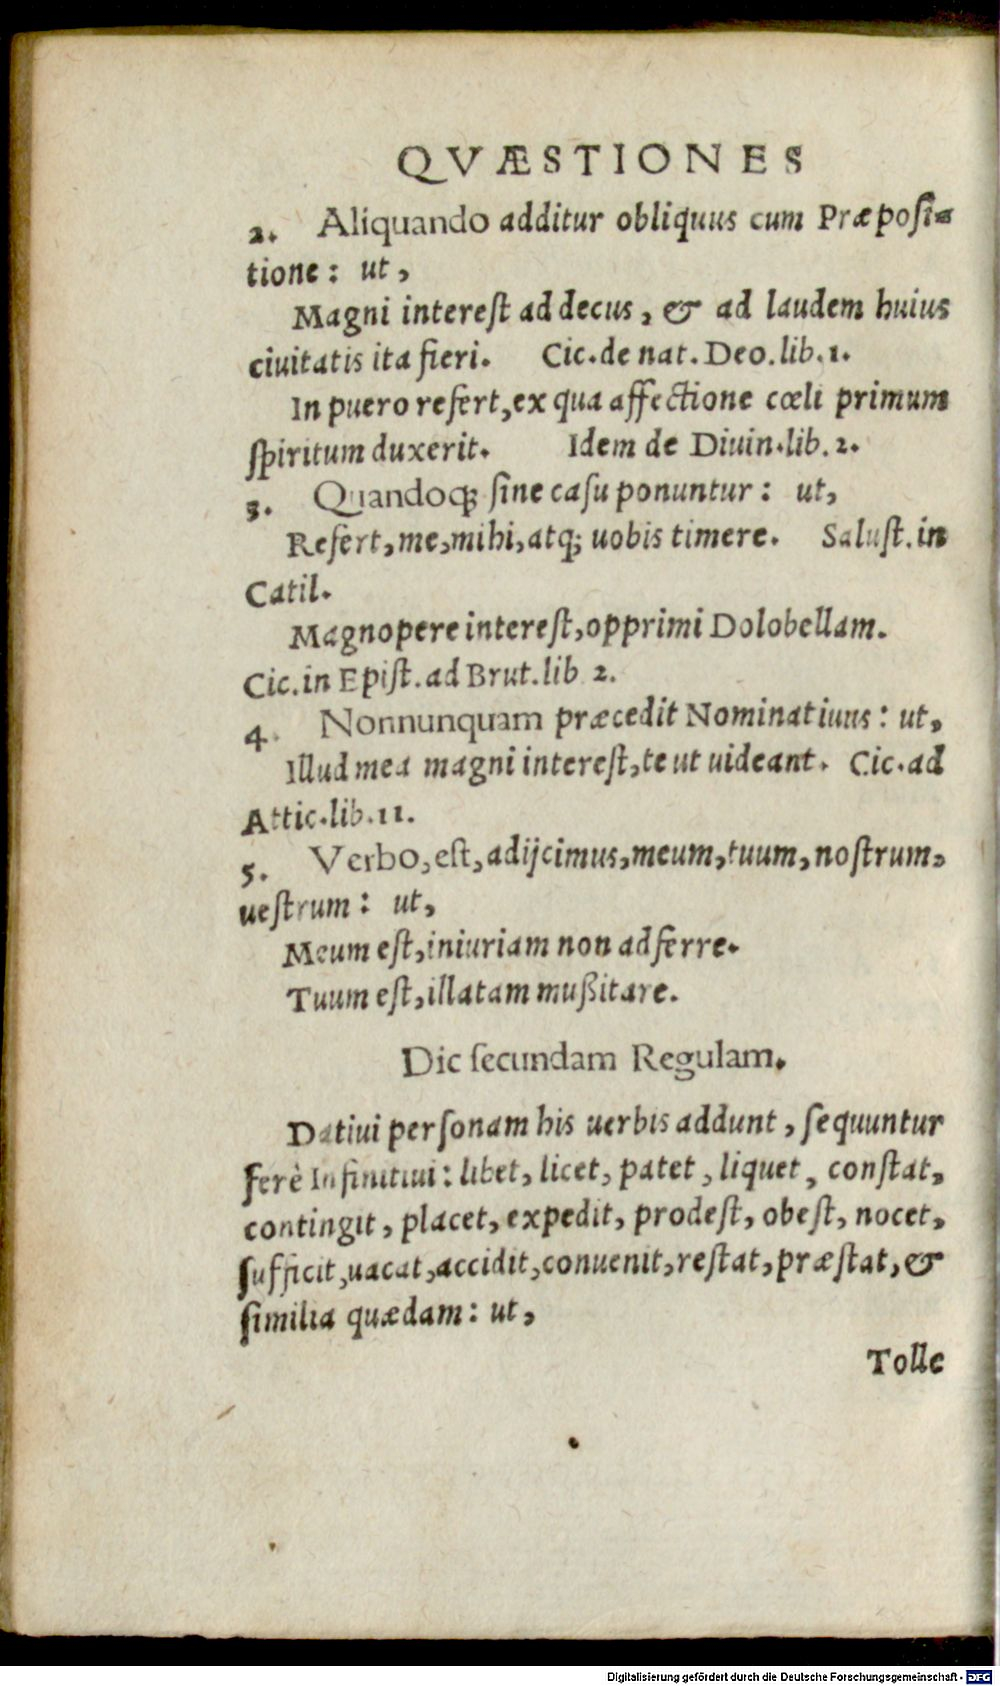 QVÆSTIONES
2. Aliquando additur obliquus cum Præposi-
tione: ut,
Magni interest ad decus, & ad laudem huius
ciuitatis ita fieri. Cic. de nat. Deo. lib. 1.
In puero refert, ex qua affectione cœli primum
spiritum duxerit. Idem de Diuin. lib. 2.
3. Quandoq; sine casu ponuntur: ut,
Refert, me, mihi, atq; uobis timere. Salust. in
Catil.
Magnopere interest, opprimi Dolobellam.
Cic. in Epist. ad Brut. lib 2.
4. Nonnunquam præcedit Nominatiuus: ut,
Illud mea magni interest, te ut uideant. Cic. ad
Attic. lib. 11.
5. Verbo, est, adijcimus, meum, tuum, nostrum,
uestrum: ut,
Meum est, iniuriam non adferre.
Tuum est, illatam mußitare.
Dic secundam Regulam.
Datiui personam his uerbis addunt, sequuntur
ferè Infinitiui: libet, licet, patet, liquet, constat,
contingit, placet, expedit, prodest, obest, nocet,
sufficit, uacat, accidit, conuenit, restat, præstat, &
similia quædam: ut,
Tolle
Digitalisierung gefördert durch die Deutsche Forschungsgemeinschaft - DFG